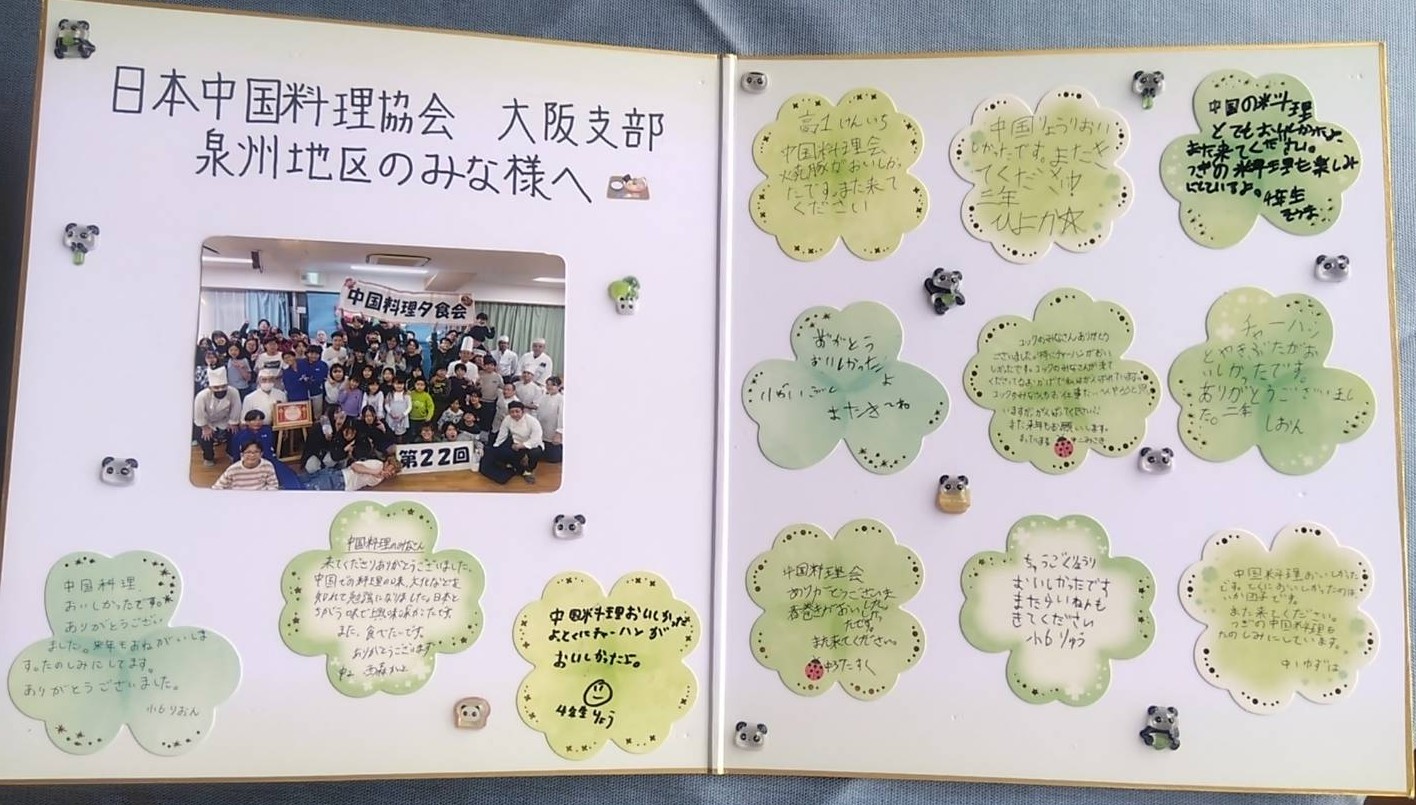 日本中国料理協会 大阪支部
泉州地区のみな様へ
中国料理夕食会
第22回
中国料理
おいしかったです。
ありがとうござい
ました。来年もおねがいしま
す。たのしみにしてます。
ありがとうございました。
小6 りおん
中国料理のみなさん
来てくださりありがとうございました。
中国の料理の味、文化などを
知れて勉強になりました。日本と
ちがう味で興味深かったです。
また、食べたいです。
ありがとうございます
中2
中国料理おいしかったよ
とくにチャーハンが
おいしかったよ。
4年生 りょう
高1 けんいち
中国料理会
焼豚がおいしかっ
たです。また来て
ください
中国りょうりおい
しかったです。またき
てください
三年
ひよか☆
中国の料理
とてもおいしかったよ。
また来てください。
つぎの料理も楽しみ
にしているよ。4年生
そうま
ありがとう
おいしかったよ
またきてね
コックのみなさんありがとう
ございました。特にチャーハンがおい
しかったです。コックのみなさんが来て
また来年もお願いします。
チャーハン
とやきぶたがお
いしかったです。
ありがとうございまし
た。二年 しおん
中国料理会
ありがとうございま
春巻きがおいしかっ
たです。
また来てください。
中3 たすく
ちゅうごくりょうり
おいしかったです
またらいねんも
きてください
小6 りゅう
中国料理おいしかった
です。とくにおいしかったのは
また来てください。
つぎの中国料理も
たのしみにしています。
中1 ゆずは